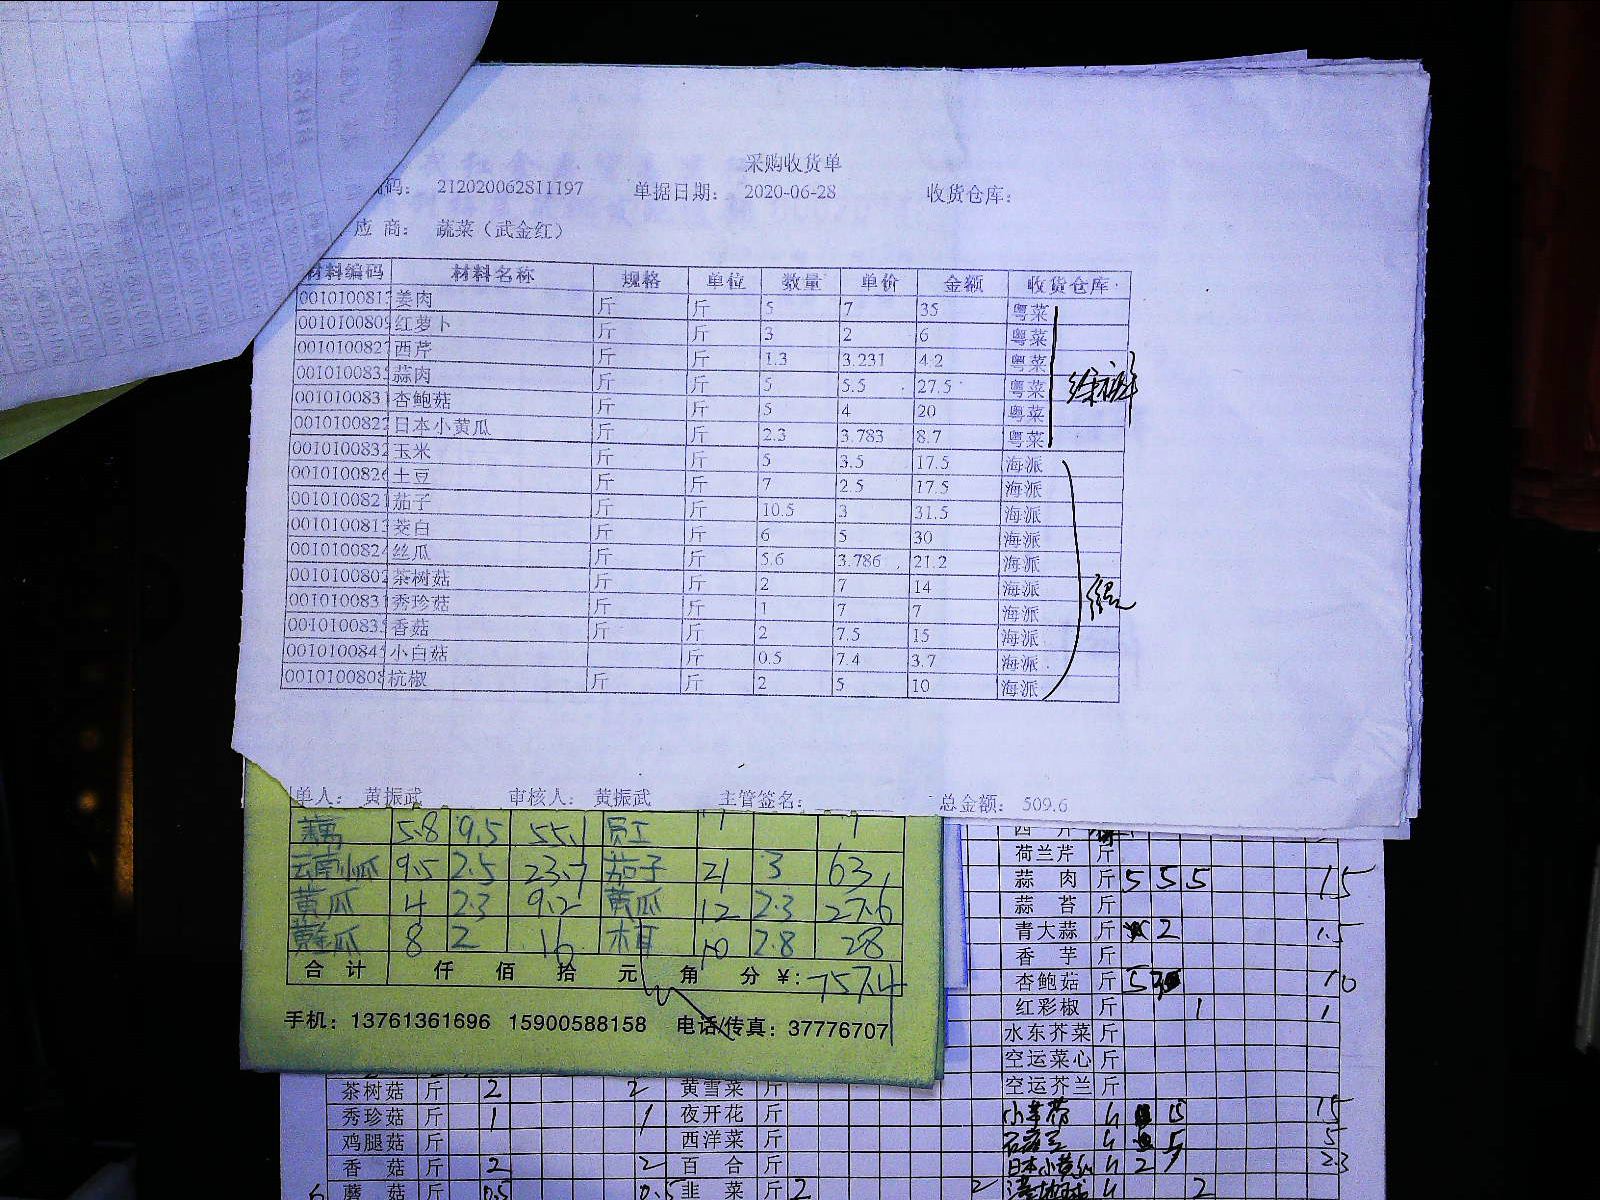 采购收货单
码： 212020062811197 单据日期： 2020-06-28 收货仓库：
应 商： 蔬菜（武金红）
材料编码 材料名称 规格 单位 数量 单价 金额 收货仓库
001010081 姜肉 斤 斤 5 7 35 粤菜
001010080 红萝卜 斤 斤 3 2 6 粤菜
001010082 西芹 斤 斤 1.3 3.231 4.2 粤菜
001010083 蒜肉 斤 斤 5 5.5 27.5 粤菜
001010083 杏鲍菇 斤 斤 5 4 20 粤菜
001010082 日本小黄瓜 斤 斤 2.3 3.783 8.7 粤菜
001010083 玉米 斤 斤 5 3.5 17.5 海派
001010082 土豆 斤 斤 7 2.5 17.5 海派
001010082 茄子 斤 斤 10.5 3 31.5 海派
001010081 茭白 斤 斤 6 5 30 海派
001010082 丝瓜 斤 斤 5.6 3.786 21.2 海派
001010080 茶树菇 斤 斤 2 7 14 海派
001010083 秀珍菇 斤 斤 1 7 7 海派
001010083 香菇 斤 斤 2 7.5 15 海派
001010084 小白菇 斤 0.5 7.4 3.7 海派
001010080 杭椒 斤 斤 2 5 10 海派
单人： 黄振武 审核人： 黄振武 主管签名： 总金额： 509.6
藕 5.8 9.5 55.1 员工
云南小瓜 9.5 2.5 23.7 茄子 21 3 63
黄瓜 4 2.3 9.2 黄瓜 12 2.3 27.6
瓜 8 2 16 木耳 10 2.8 28
合 计 仟 佰 拾 元 角 分 ¥: 757.4
手机：13761361696 15900588158 电话/传真：37776707
西 芹
荷兰芹 斤
蒜 肉 斤 5 5 5 15
蒜 苔 斤
青大蒜 斤 2 1.5
香 芋 斤
杏鲍菇 斤 5 10
红彩椒 斤 1 1
水东芥菜 斤
空运菜心 斤
空运芥兰 斤
茶树菇 斤 2 2 黄雪菜 斤
秀珍菇 斤 1 1 夜开花 斤 15 15
鸡腿菇 斤 西洋菜 斤 5 5
香 菇 斤 2 2 百 合 斤 日本小黄瓜 2 2.3
蘑 菇 斤 0.5 0.5 韭 菜 斤 2 2 2